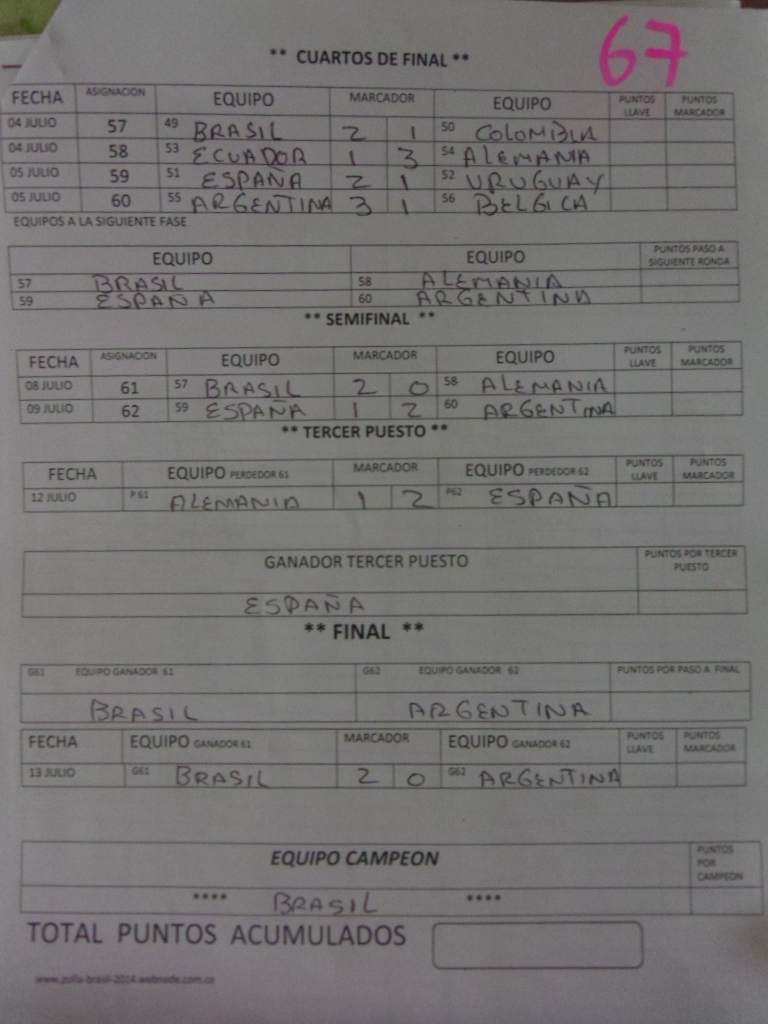 67
** CUARTOS DE FINAL **
FECHA ASIGNACION EQUIPO MARCADOR EQUIPO PUNTOS LLAVE PUNTOS MARCADOR
04 JULIO 57 49 BRASIL 2 1 50 COLOMBIA
04 JULIO 58 53 ECUADOR 1 3 54 ALEMANIA
05 JULIO 59 51 ESPAÑA 2 1 52 URUGUAY
05 JULIO 60 55 ARGENTINA 3 1 56 BELGICA
EQUIPOS A LA SIGUIENTE FASE
EQUIPO EQUIPO PUNTOS PASO A SIGUIENTE RONDA
57 BRASIL 58 ALEMANIA
59 ESPAÑA 60 ARGENTINA
** SEMIFINAL **
FECHA ASIGNACION EQUIPO MARCADOR EQUIPO PUNTOS LLAVE PUNTOS MARCADOR
08 JULIO 61 57 BRASIL 2 0 58 ALEMANIA
09 JULIO 62 59 ESPAÑA 1 2 60 ARGENTINA
** TERCER PUESTO **
FECHA EQUIPO PERDEDOR 61 MARCADOR EQUIPO PERDEDOR 62 PUNTOS LLAVE PUNTOS MARCADOR
12 JULIO P 61 ALEMANIA 1 2 P62 ESPAÑA
GANADOR TERCER PUESTO PUNTOS POR TERCER PUESTO
ESPAÑA
** FINAL **
G61 EQUIPO GANADOR 61 G62 EQUIPO GANADOR 62 PUNTOS POR PASO A FINAL
BRASIL ARGENTINA
FECHA EQUIPO GANADOR 61 MARCADOR EQUIPO GANADOR 62 PUNTOS LLAVE PUNTOS MARCADOR
13 JULIO G61 BRASIL 2 0 G62 ARGENTINA
EQUIPO CAMPEON PUNTOS POR CAMPEON
**** BRASIL ****
TOTAL PUNTOS ACUMULADOS
www.polla-brasil-2014.webnode.com.co